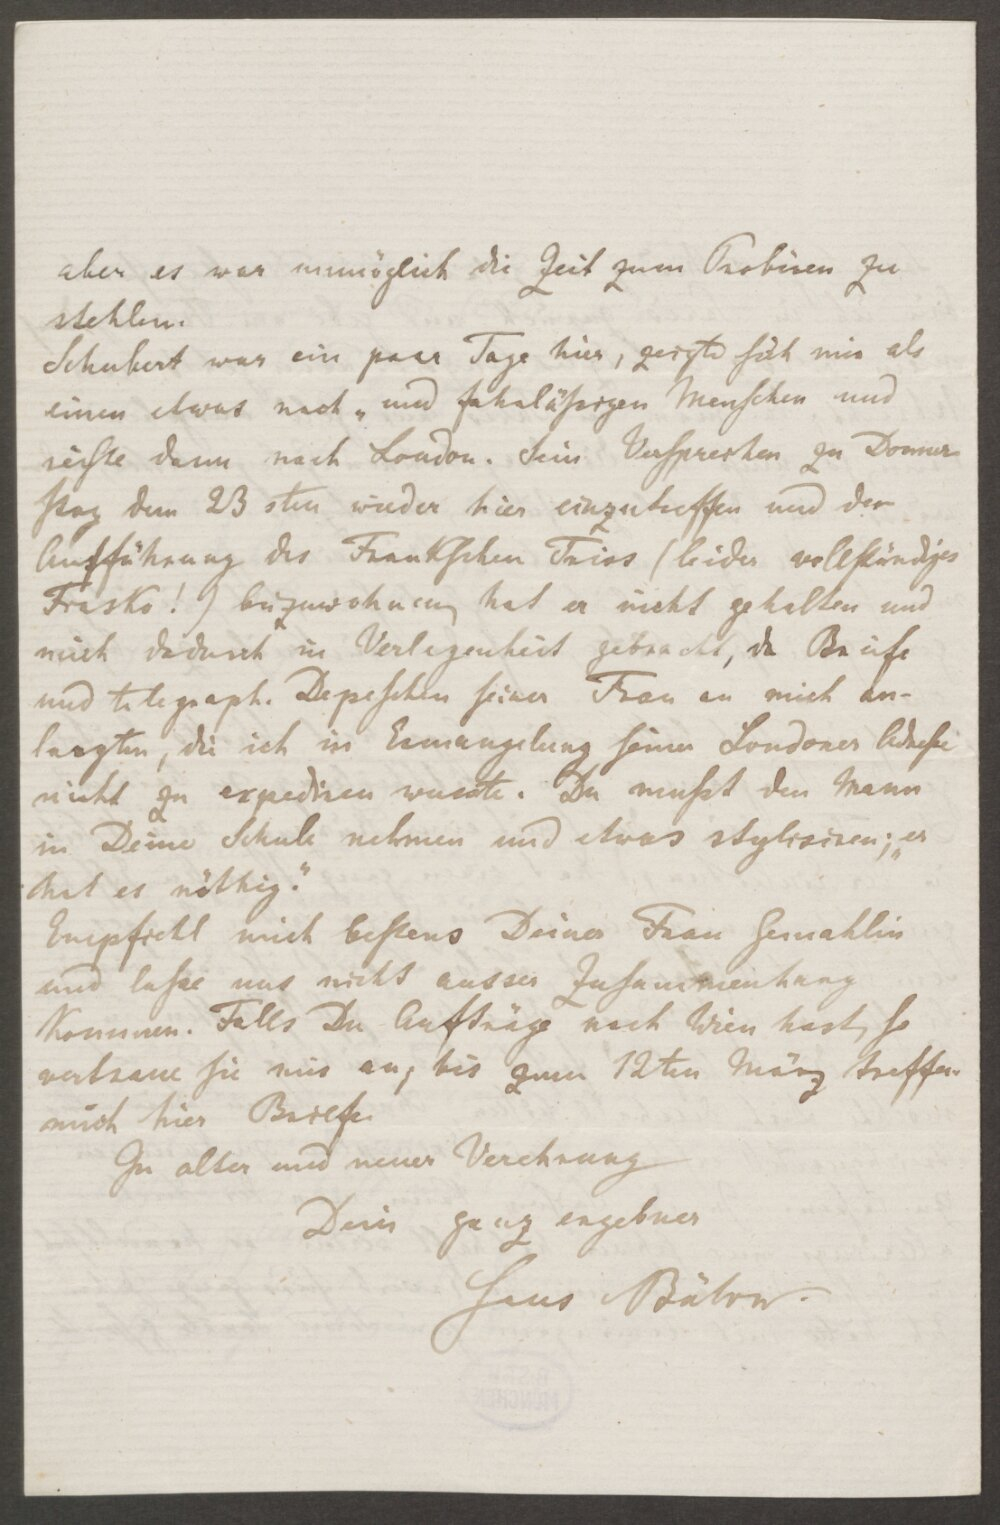 aber es war unmöglich die Zeit zum Probiren zu
stehlen.
Schubert war ein paar Tage hier, zeigte sich mir als
einen etwas nach- und fahrläßigen Menschen und
reiste dann nach London. Sein Versprechen zu Donner-
stag dem 23 sten wieder hier einzutreffen und der
Aufführung des Frankschen Trios (leider vollständiges
Fiasko!) beizuwohnen, hat er nicht gehalten und
mich dadurch in Verlegenheit gebracht, da Briefe
und telegraph. Depeschen seiner Frau an mich an-
langten, die ich in Ermangelung seiner Londoner Adresse
nicht zu expediren wusste. Du mußt den Mann
in Deine Schule nehmen und etwas stylisiren; „er
hat es nöthig.“
Empfiehl mich bestens Deiner Frau Gemahlin
und lasse uns nicht ausser Zusammenhang
kommen. Falls Du Aufträge nach Wien hast, so
vertraue sie mir an, bis zum 12ten März treffen
mich hier Briefe.
In alter und neuer Verehrung
Dein ganz ergebner
Hans Bülow.
MÜNCHEN